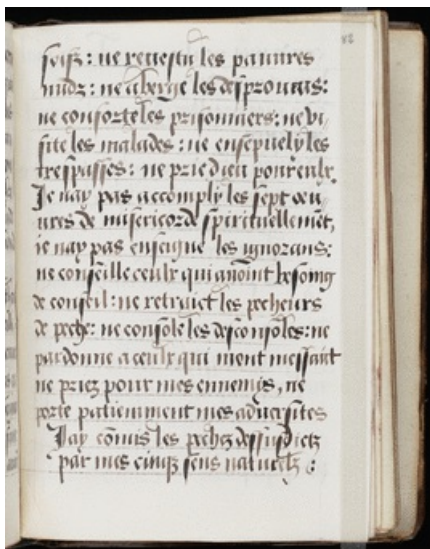 soifz : ne revestu les pauvres
nudz : ne a berge les desprouvas :
ne conforte les prisonniers : ne vi-
site les malades : ne ensepuely les
trespasses : ne prie dieu pour eulx.
Je nay pas accomply les sept œu-
vres de misericorde spirituellement,
ie nay pas enseigne les ignorans :
ne conseille ceulx qui avoint besoing
de conseil : ne retraict les pecheurs
de peche : ne console les desconsoles : ne
pardonne a ceulx qui mont meffait
ne priez pour mes ennemis, ne
porte patiemment mes adversites
Jay comis les pechez dessusdictz
par mes cinqz sens naturelz :